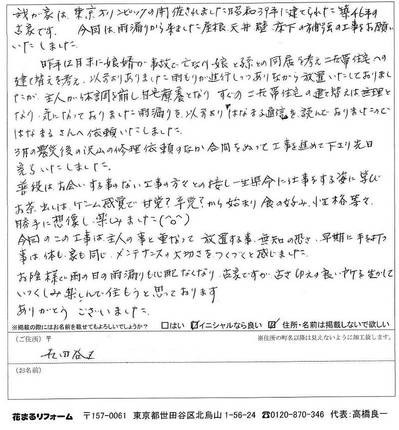 我が家は、東京オリンピックの開催されました昭和39年に建てられた築46年の
古家です。 今回は雨漏りから来ました屋根、天井、壁、床下の補強の工事をお願
いたしました。
昨年は月末に娘婿が事故で亡なり、娘と孫との同居を考え二世帯住宅への
建て替えを考え、以前よりありました雨もりが進行しつつありながら放置いたしておりまし
たが、主人から体調を崩し自宅療養となり、すぐの二世帯住宅の建て替えは無理と
なり、気になっておりました雨漏りを、以前より「はなまる通信」を読んでおりましたので
はなまるさんへ依頼いたしました。
3月の震災後の沢山の修理依頼のなか合間をぬって工事を進めて下さり先日
完了いたしました。
普段はお会いする事のない工事の方々との接し一生懸命に仕事をする姿に学び
お茶出しは、ゲーム感覚で甘党?辛党?から始まり食の好み、性格等々、
勝手に想像し楽しみました(^o^)
今回のこの工事は主人の事と重なって放置する事、無知の恐さ、早期に手を打つ
事は体も、家も同じ、メンテナンスの大切さをつくづくと感じました。
お陰様で雨の日の雨漏りも心配なくなり、古家ですが古さゆえの良いかたちを生かして
いつくしみ楽しんで住もうと思っております
ありがとうございました。
※掲載の際にはお名前を載せてもよろしいでしょうか? □はい ☑イニシャルなら良い ☑住所・名前は掲載しないで欲しい
(ご住所) 〒 ※住所の町名以降は見えないように加工致します。
世田谷区
(お名前)
花まるリフォーム 〒157-0061 東京都世田谷区北烏山1-56-24 ☎0120-870-346 代表:高橋良一